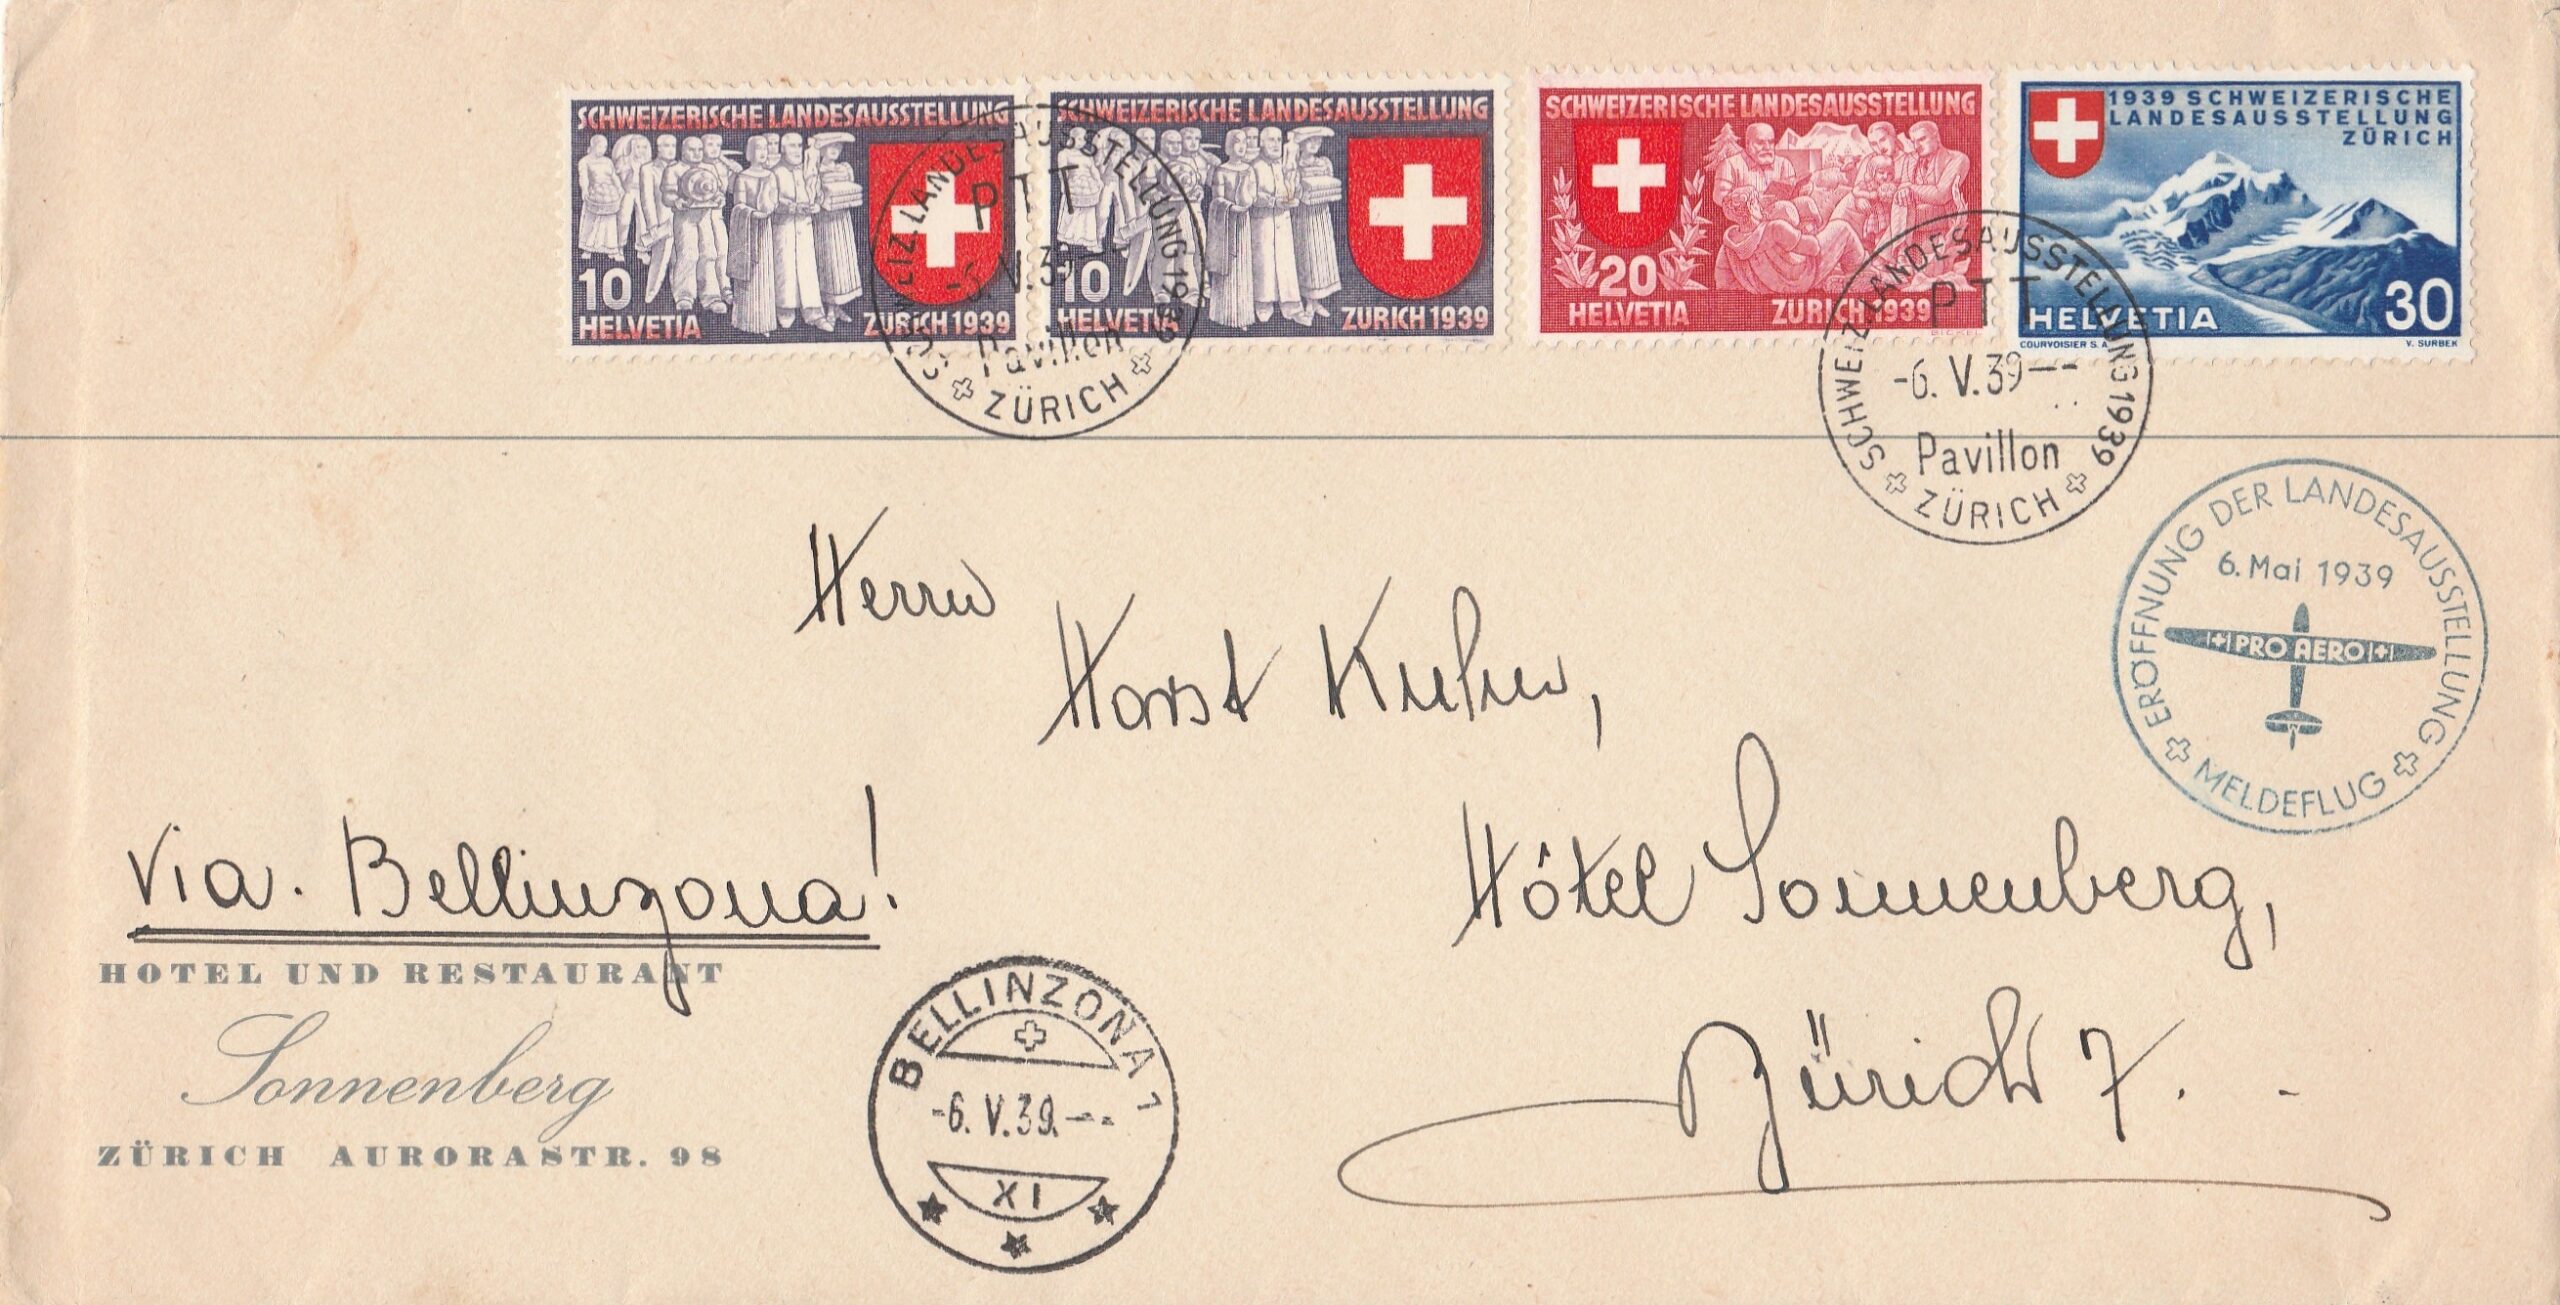 SCHWEIZERISCHE LANDESAUSSTELLUNG
10
HELVETIA
ZÜRICH 1939
SCHWEIZERISCHE LANDESAUSSTELLUNG
10
HELVETIA
ZÜRICH 1939
SCHWEIZERISCHE LANDESAUSSTELLUNG
20
HELVETIA
ZÜRICH 1939
BICKEL
1939 SCHWEIZERISCHE
LANDESAUSSTELLUNG
ZÜRICH
30
HELVETIA
COURVOISIER S.A.
V. SURBEK
SCHWEIZ. LANDESAUSSTELLUNG 1939
PTT
-6. V. 39--
Pavillon
ZÜRICH
SCHWEIZ. LANDESAUSSTELLUNG 1939
PTT
-6. V. 39--
Pavillon
ZÜRICH
ERÖFFNUNG DER LANDESAUSSTELLUNG
6. Mai 1939
PRO AERO
MELDEFLUG
Herrn
Horst Kuhn,
Hôtel Sonnenberg,
Zürich 7. -
Via. Bellinzona!
HOTEL UND RESTAURANT
Sonnenberg
ZÜRICH AURORASTR. 98
BELLINZONA 1
-6. V. 39.--
XI